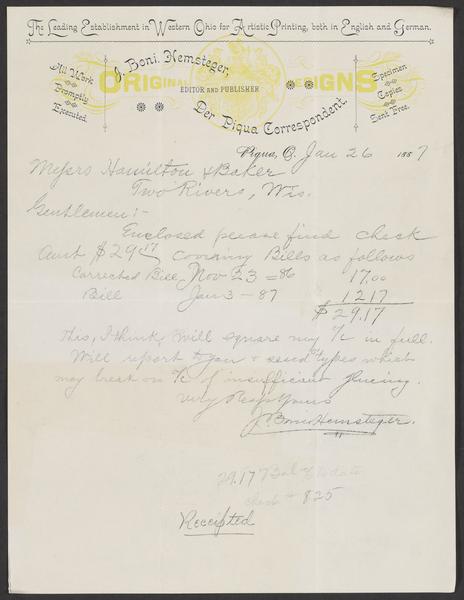 The Leading Establishment in Western Ohio for Artistic Printing, both in English and German.
All Work
Promptly
Executed.
J. Boni. Hemsteger,
ORIGINAL DESIGNS
EDITOR AND PUBLISHER
Der Piqua Correspondent.
Specimen
Copies
Sent Free.
Piqua, O. Jan 26 1887
Messrs Hamilton & Baker
Two Rivers, Wis.
Gentlemen:-
Enclosed please find check
Amt $29.17 covering Bills as follows
Corrected Bill, Nov 23 = 86 17.00
Bill Jan 3 - 87 12 17
$29.17
This, I think, will square my a/c in full.
Will report to you & send types which
may break on a/c of insufficient glueing.
Very Resp Yours
J. Boni Hemsteger.
29.17 Bal to date
825
Receipted